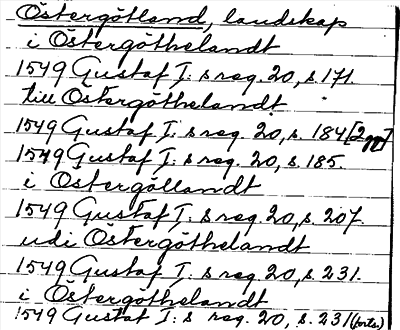 Östergötland, landskap
i Östergöthelandt
1549 Gustaf I: s reg. 20, s. 171.
till Östergöthelandt
1549 Gustaf I: s reg. 20, s. 184 [2 ggr]
1549 Gustaf I: s reg. 20, s. 185.
i Östergöllandt
1549 Gustaf I: s reg. 20, s. 207.
udi Östergöthelandt
1549 Gustaf I: s reg. 20, s. 231.
i Östergöthelandt
1549 Gustaf I: s reg. 20, s. 231 (forts)